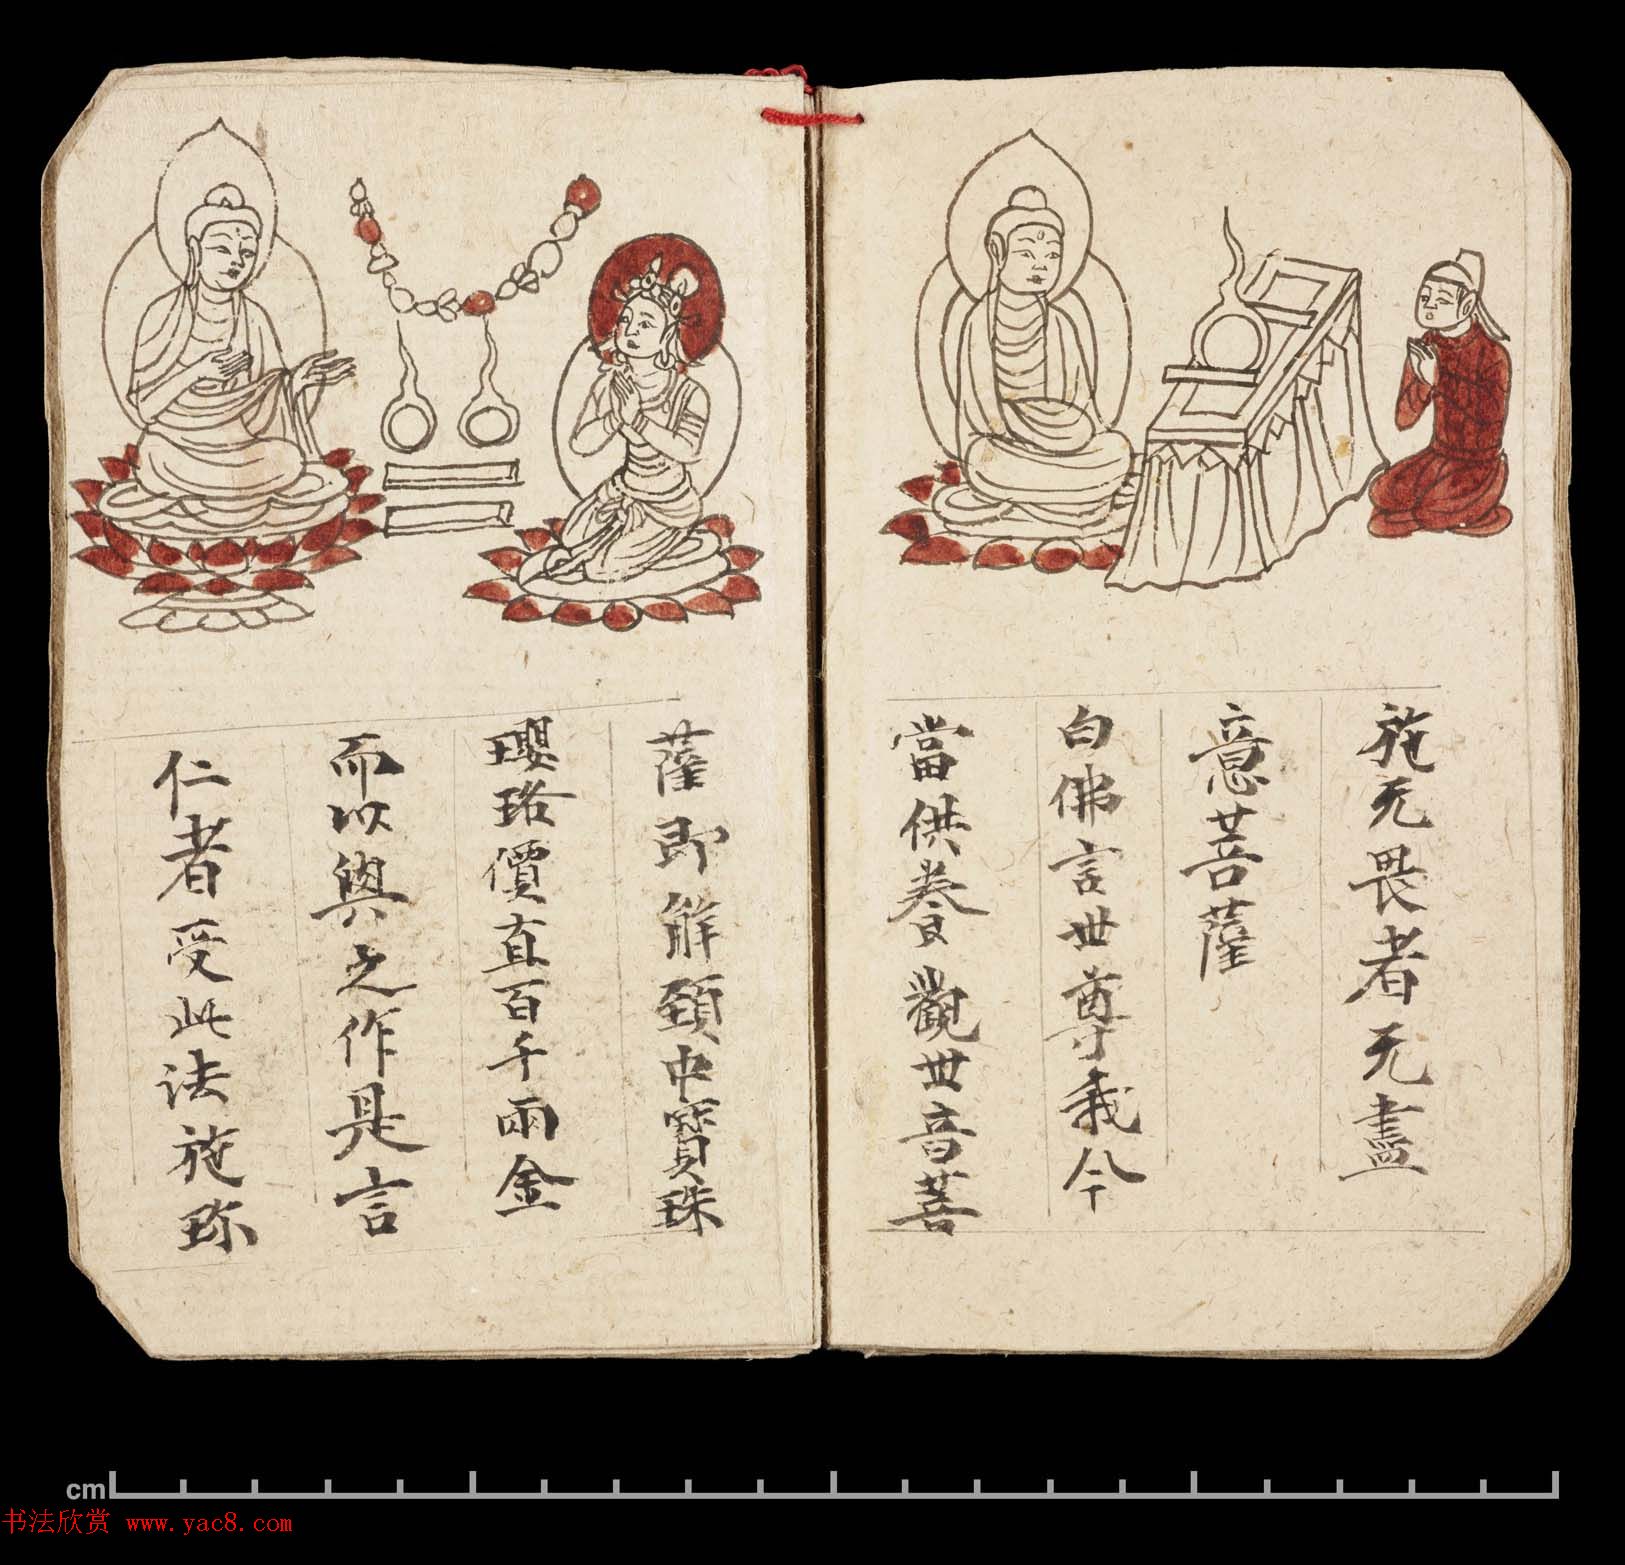 施无畏者无盡
意菩薩
白佛言世尊我今
當供養觀世音菩
薩即解頸中寶珠
瓔珞價直百千兩金
而以與之作是言
仁者受此法施珎
cm
书法欣赏 www.yac8.com